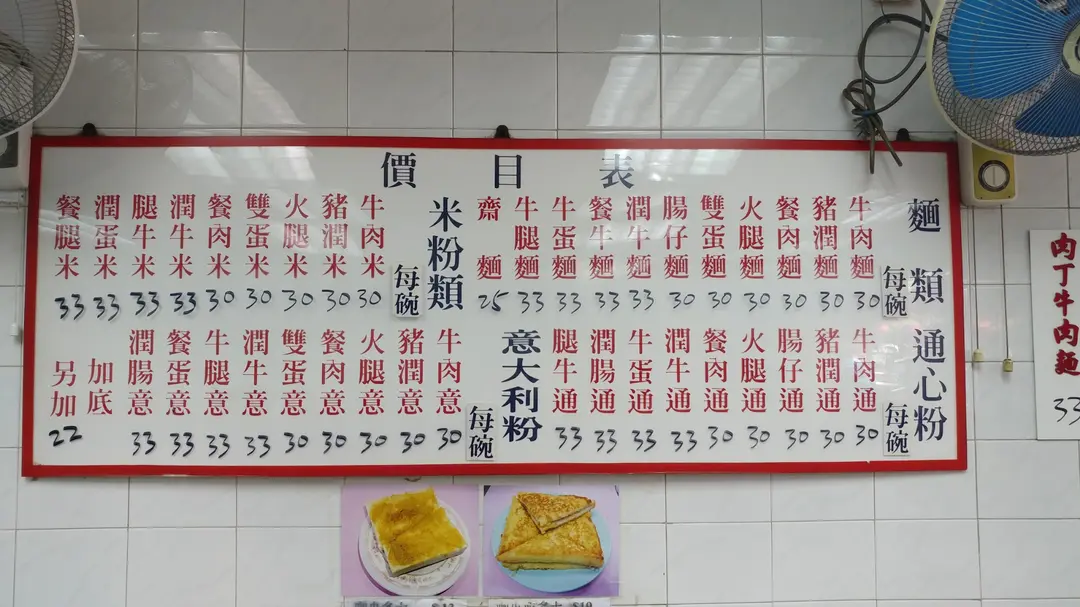 價目表
麵類
每碗
牛肉麵 30
豬潤麵 30
餐肉麵 30
火腿麵 30
雙蛋麵 30
腸仔麵 30
潤牛麵 33
餐牛麵 33
牛蛋麵 33
牛腿麵 33
齋麵 25
米粉類
每碗
牛肉米 30
豬潤米 30
火腿米 30
雙蛋米 30
餐肉米 30
潤牛米 33
腿牛米 33
潤蛋米 33
餐腿米 33
通心粉
每碗
牛肉通 30
豬潤通 30
腸仔通 30
火腿通 30
餐肉通 30
潤牛通 33
牛蛋通 33
潤腸通 33
腿牛通 33
意大利粉
每碗
牛肉意 30
豬潤意 30
火腿意 30
餐肉意 30
雙蛋意 30
潤牛意 33
牛腿意 33
餐蛋意 33
潤腸意 33
加底
另加 22
肉丁牛肉麵 33